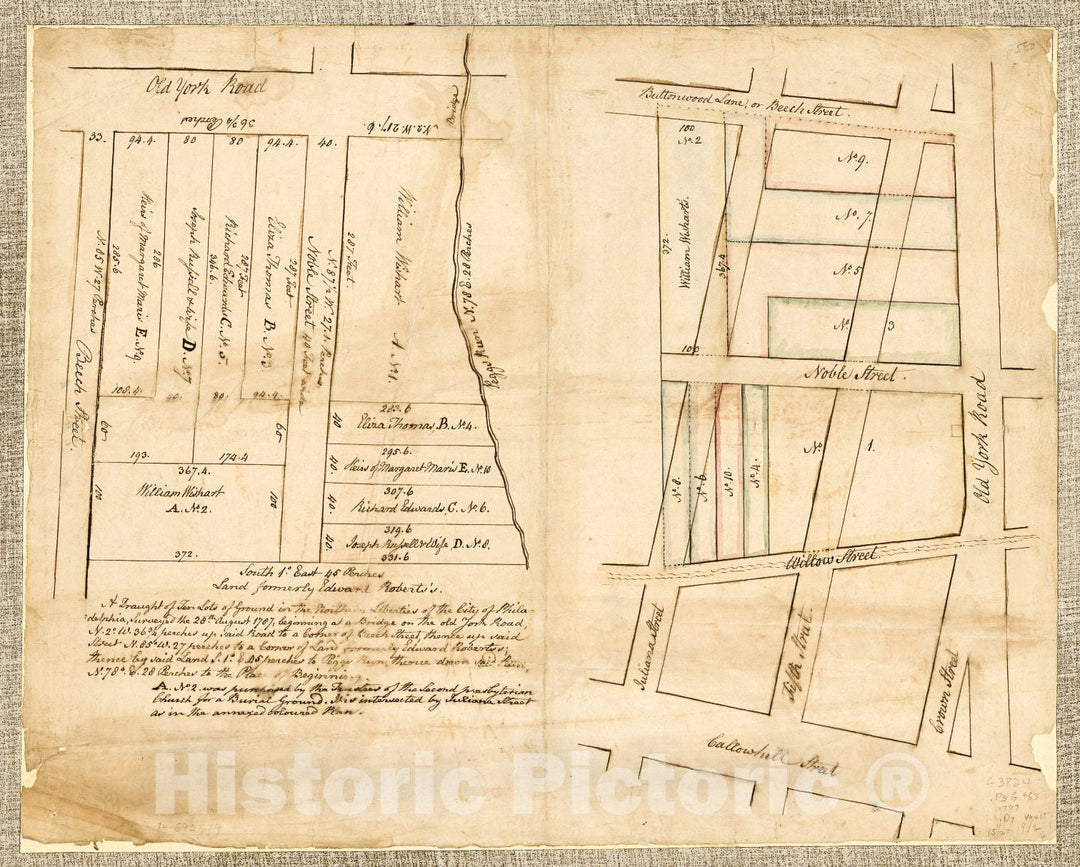 Old York Road
36¾ Perches
N. 2. W. 217. 6
Bridge
33.
94.4.
80
80
94.4.
40.
N. 85 W. 27 Perches
Beech Street.
285.6
Heirs of Margaret Maris E. No. 9.
286
Joseph Russell & Wife D. No 7
Richard Edwards C. No. 5.
286.6.
287 Feet
Eliza Thomas B. No 3
287 Feet
Noble Street 40 Feet wide
N. 87½ W. 27.1 Perches
287 Feet.
William Wishart A No 1.
Peggs Run N. 78 E. 28 Perches
108.4.
80.
80.
94.4
60.
60
193.
174.4
367.4.
William Wishart
A. No 2.
100
100
372.
40
40.
40.
40
283.6
Eliza Thomas, B. No 4.
295.6
Heirs of Margaret Maris E. No 10
307.6
Richard Edwards, C. No 6.
319.6
Joseph Russell & Wife D. No 8.
331.6
South 1°. East 45 Perches
Land formerly Edward Roberts's.
A Draught of Ten Lots of Ground in the Northern Liberties of the City of Phila-
delphia, Surveyed the 28th August 1787, beginning at a Bridge on the old York Road,
N. 2° W. 36¾ perches up said Road to a Corner of Beech Street thence up said
Street N. 85° W. 27 perches to a Corner of Land formerly Edward Roberts's;
thence by said Land S. 1°. E 45 perches to Peggs Run, thence down said Run
N. 78°. E. 28 Perches to the Place of Beginning.
A. No 2. was purchased by the Trustees of the Second presbyterian
Church for a Burial Ground. It is intersected by Juliana Street
as in the annexed coloured Plan.
Buttonwood Lane, or Beech Street.
100
No. 2
William Wishart's.
372.
367.4
100
No 9.
No. 7.
No. 5
No.
3
Noble Street.
Old York Road
No. 8.
No. 6.
No. 10.
No. 4.
No
1.
Willow Street
Juliana street
Fifth Street.
Crown Street
Callowhill Street
Historic Pictoric ®
G3824
.P5G463
1787
.D7
Vault